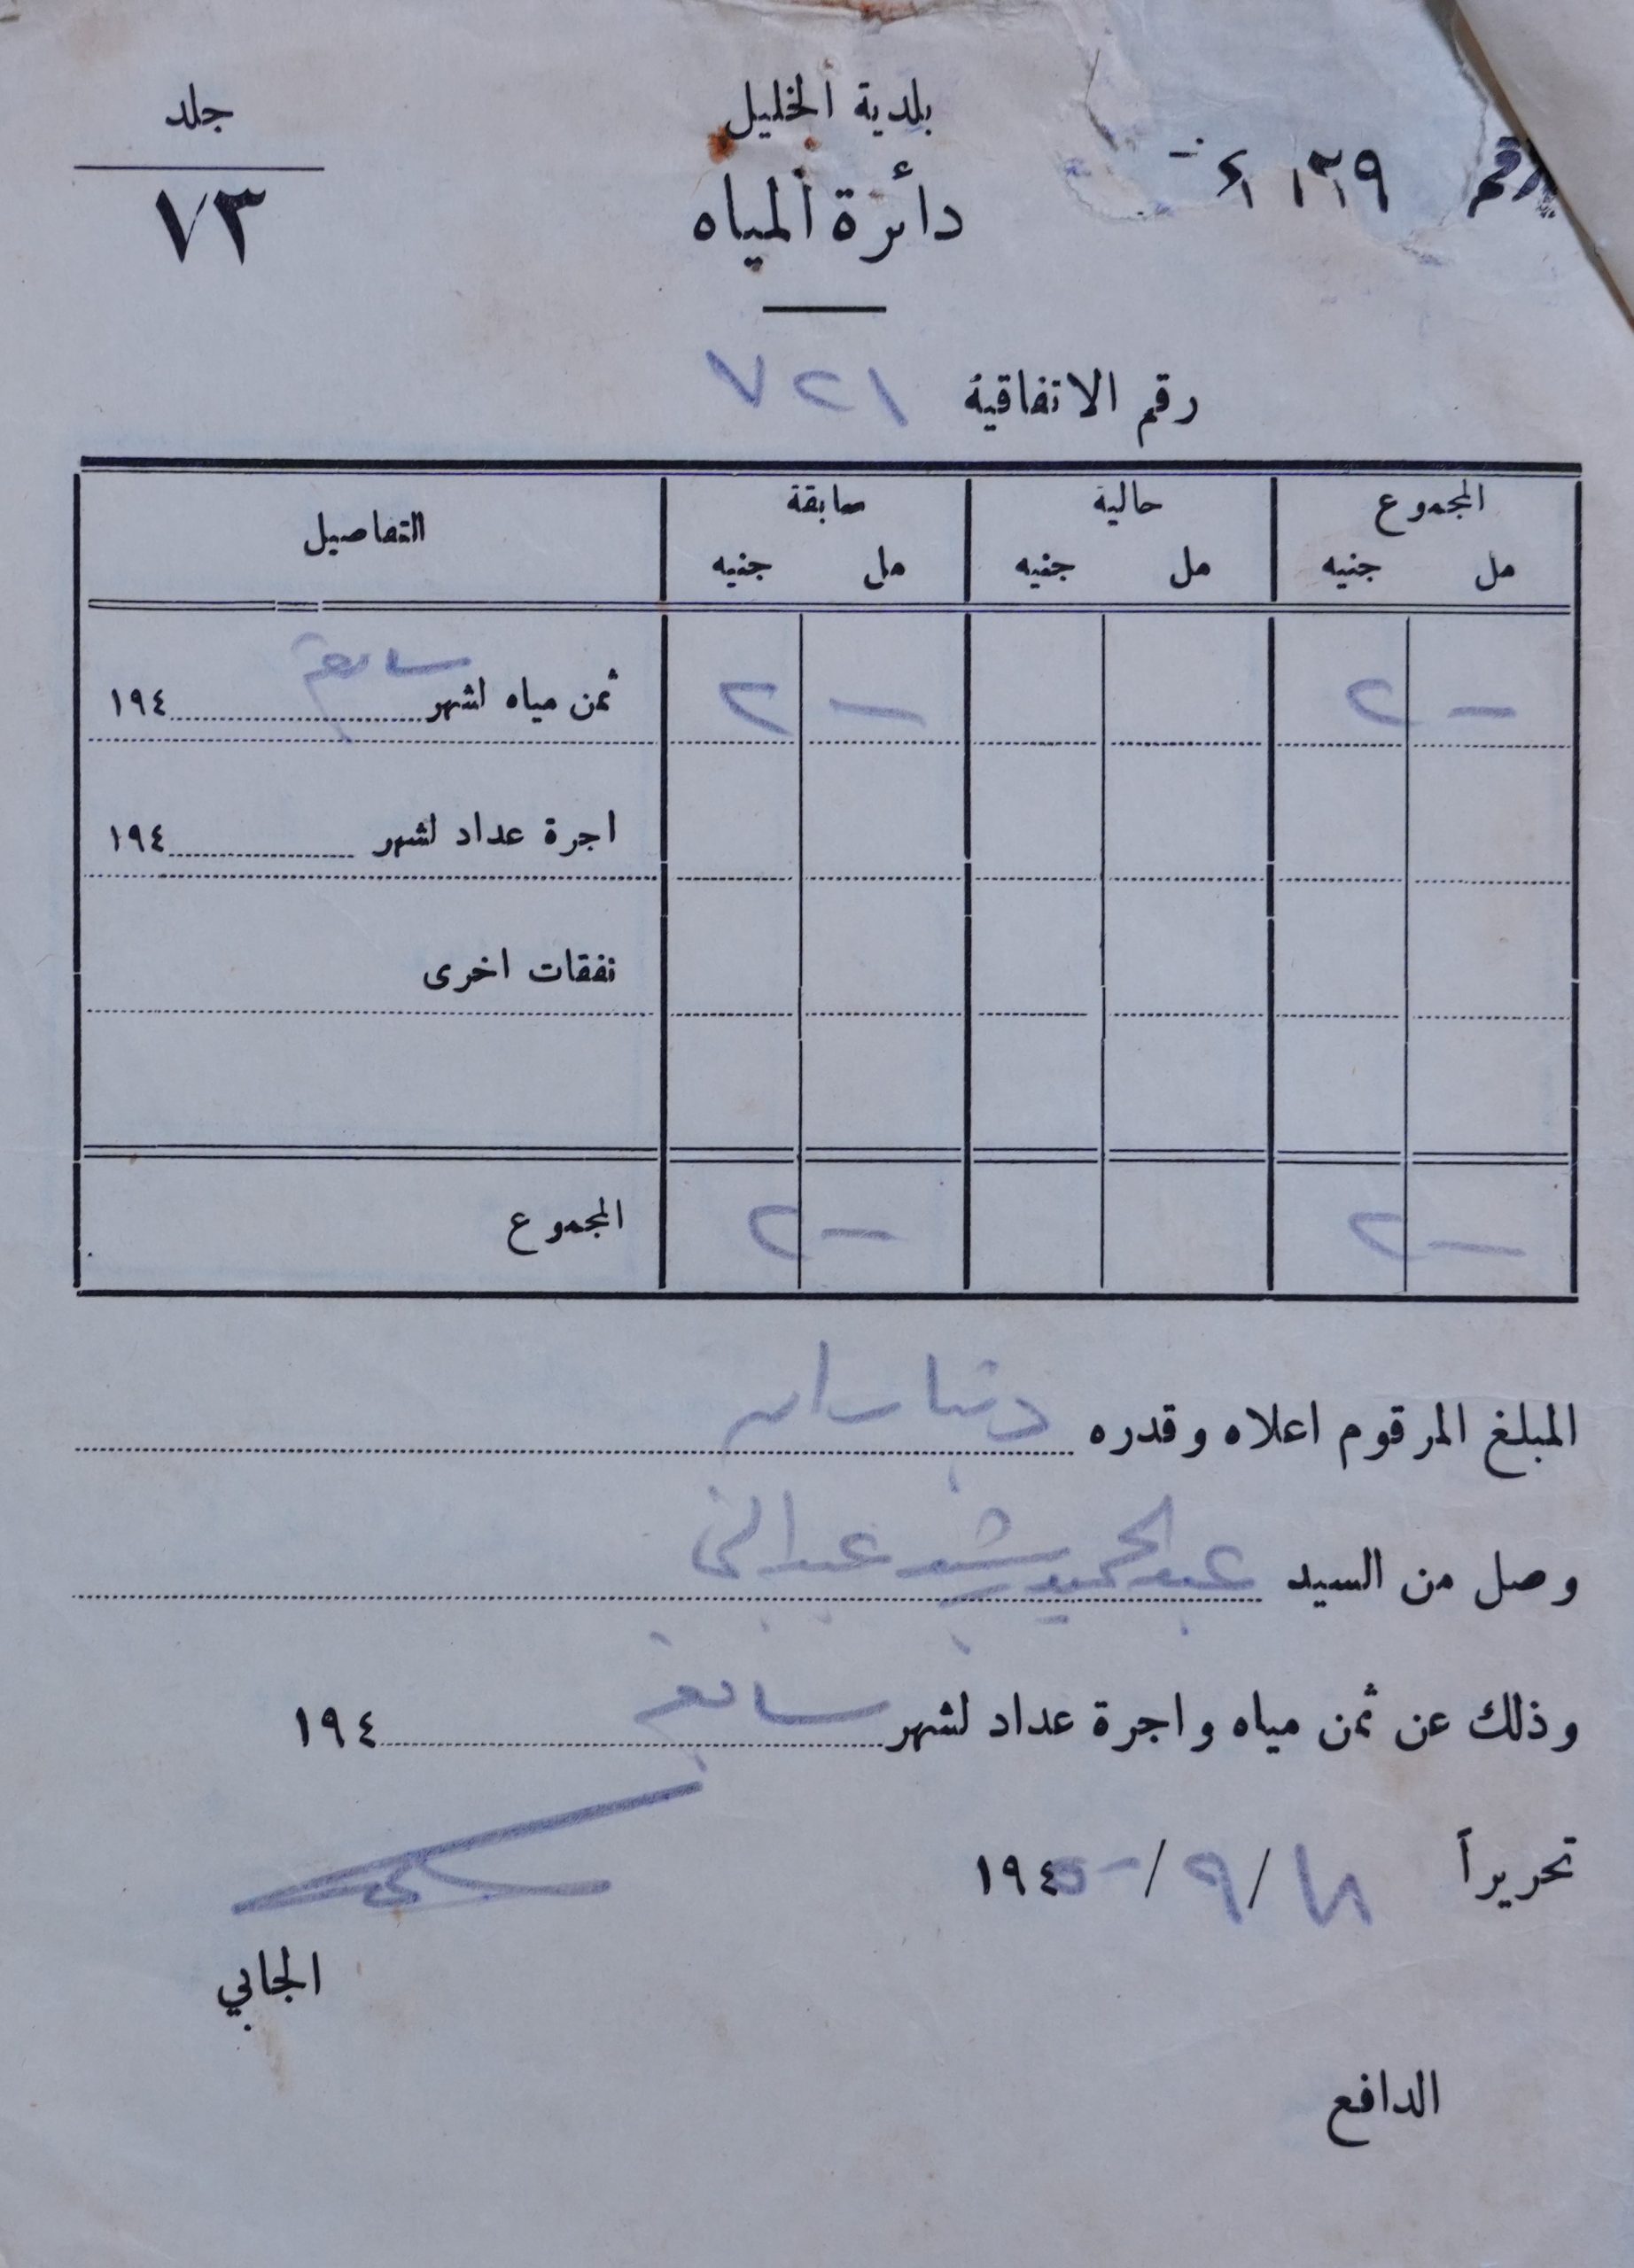 بلدية الخليل
دائرة المياه
جلد
٧٣
رقم
رقم الاتفاقية ٧٢١
المجموع حالية سابقة التفاصيل
مل جنيه مل جنيه مل جنيه
ثمن مياه لشهر سابقة ١٩٤ - ٢ - ٢
اجرة عداد لشهر ١٩٤
نفقات اخرى
المجموع - ٢ - ٢
المبلغ المرقوم اعلاه وقدره ديناران
وصل من السيد عبد الحميد رشيد عبد الغني
وذلك عن ثمن مياه واجرة عداد لشهر سابقة ١٩٤
تحريراً ١٨/٩/٩٥٠
الجابي
الدافع